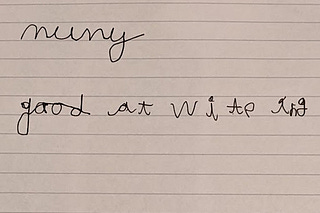 nuny
good at wite ing